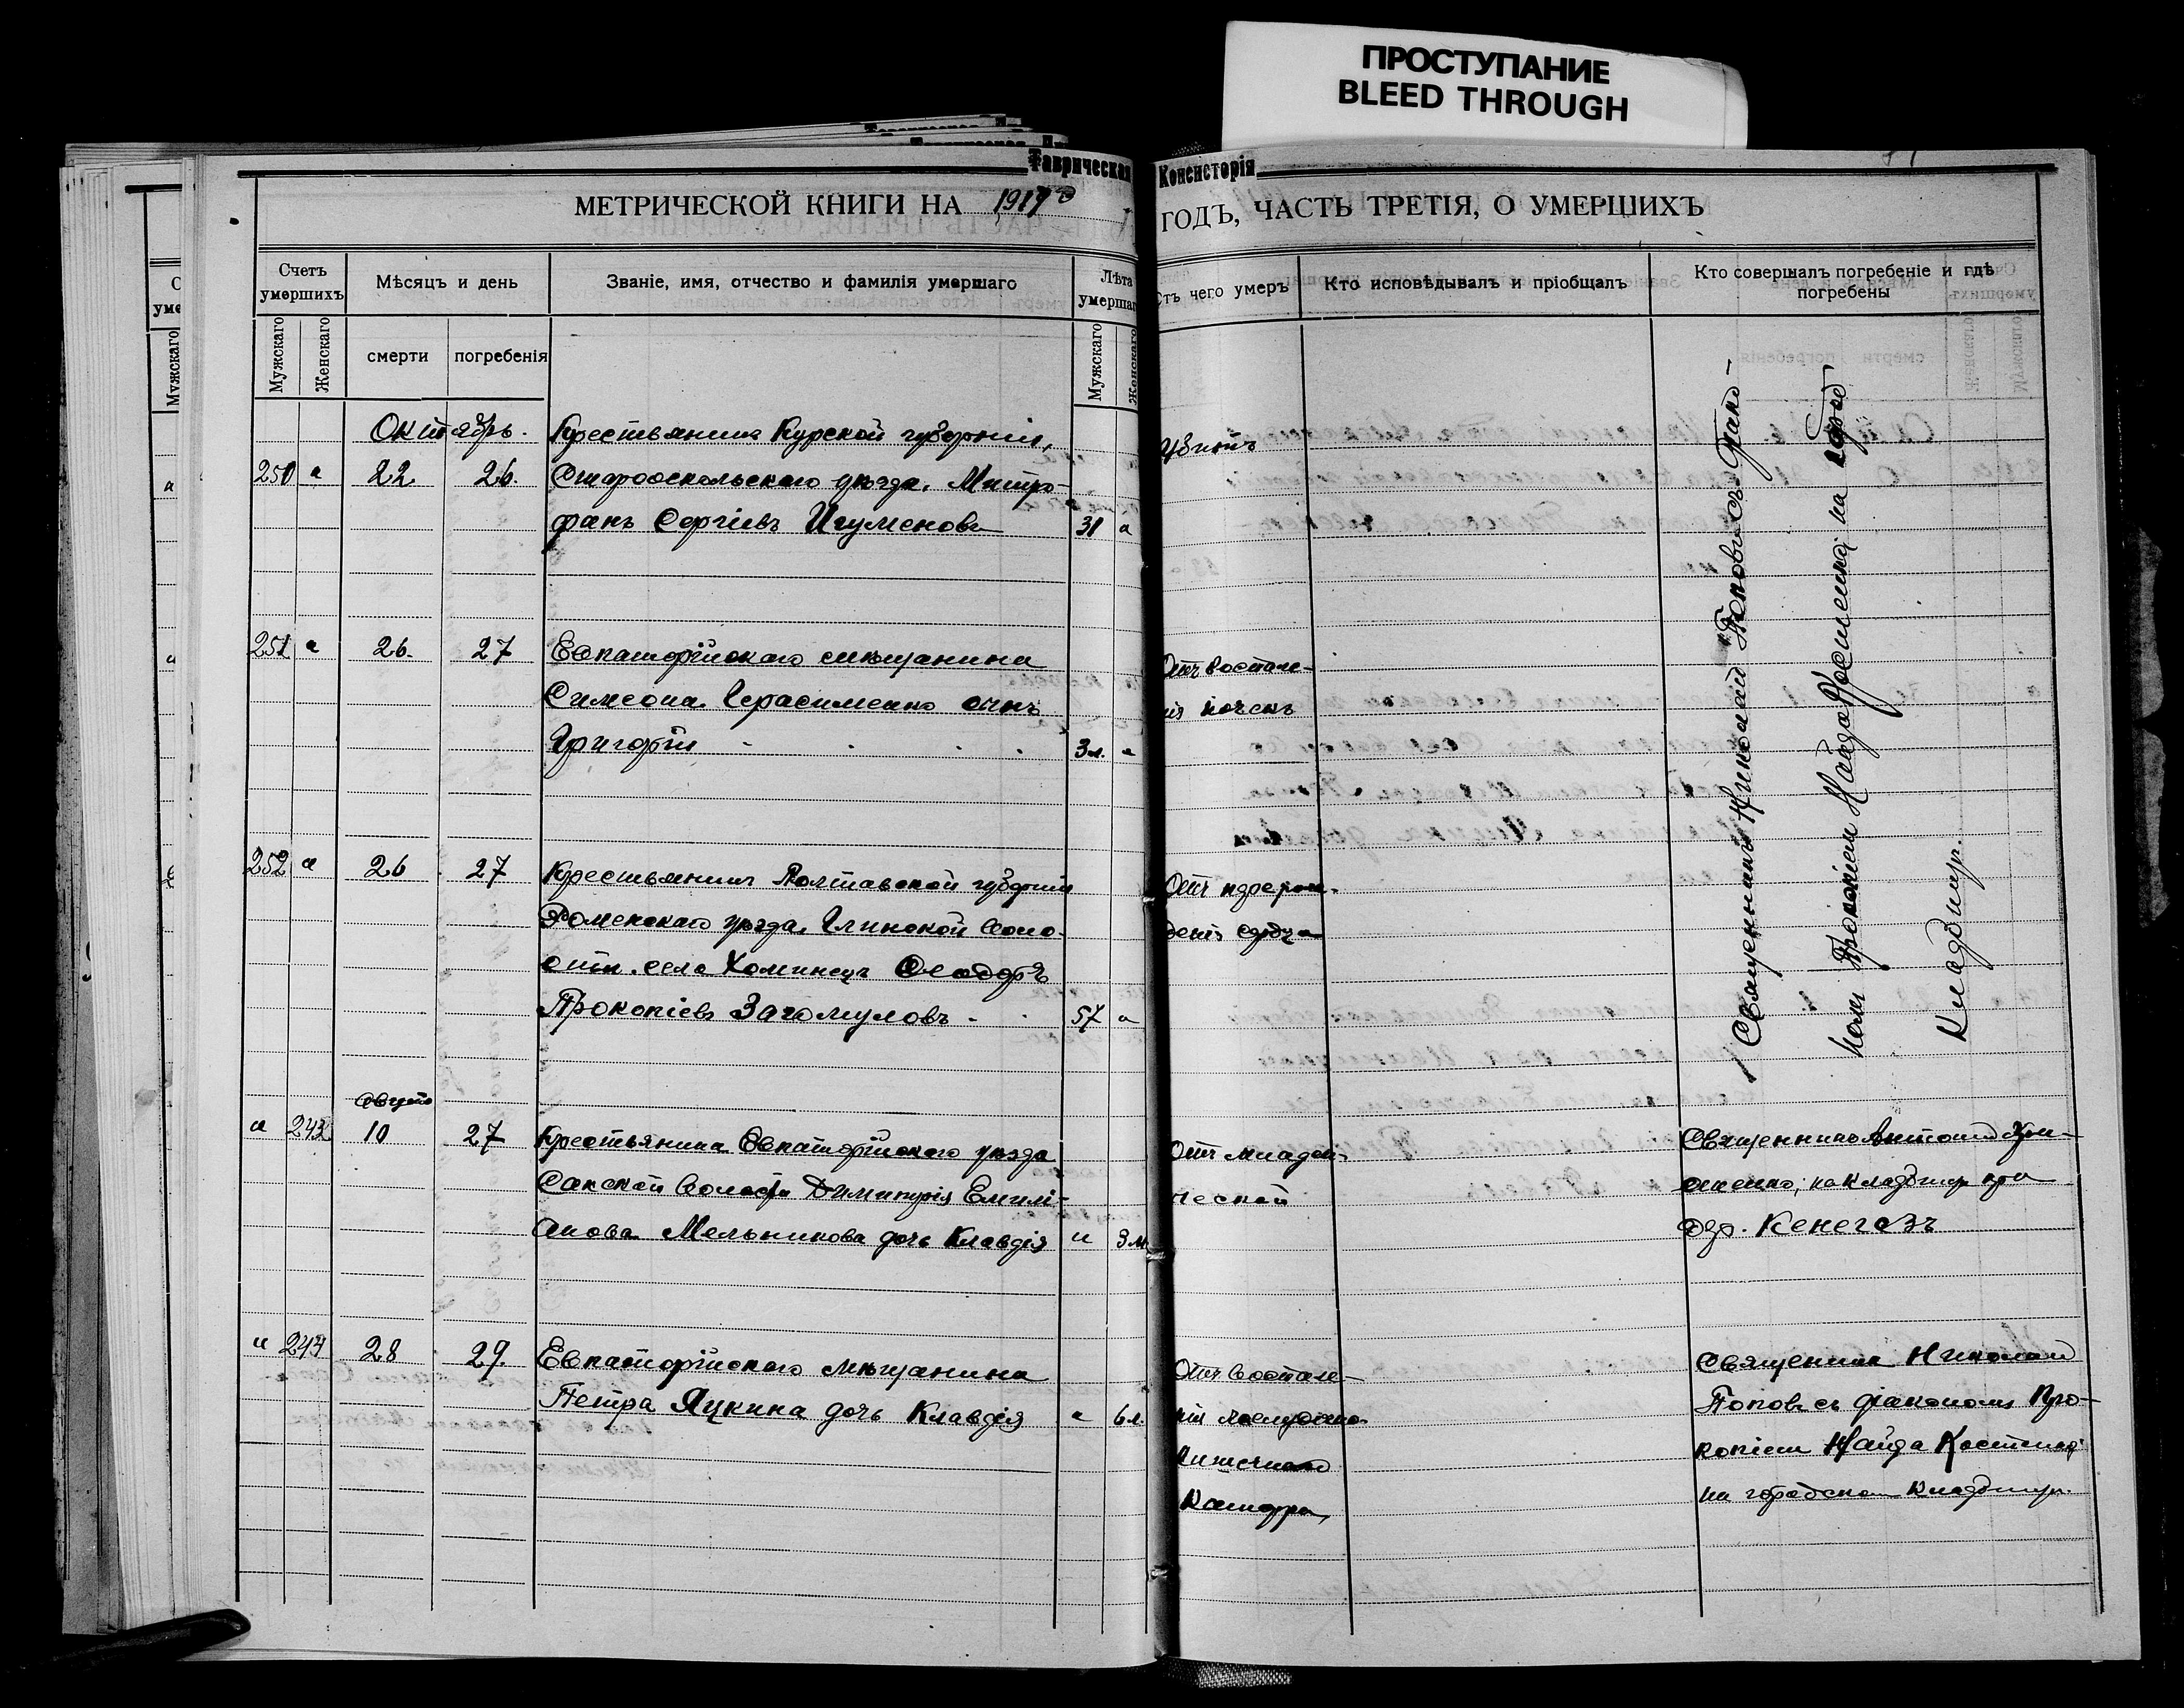 ПРОСТУПАНИЕ
BLEED THROUGH
Таврическая Консисторія
МЕТРИЧЕСКОЙ КНИГИ НА 1917 ГОДЪ, ЧАСТЬ ТРЕТІЯ, О УМЕРШИХЪ
Счетъ умершихъ
Мѣсяцъ и день
Званіе, имя, отчество и фамилія умершаго
Лѣта умершаго
Отъ чего умеръ
Кто исповѣдывалъ и пріобщалъ
Кто совершалъ погребеніе и гдѣ погребены
Мужскаго
Женскаго
смерти
погребенія
Мужскаго
Женскаго
Октябрь.
Крестьянинъ Курской губерніи,
250 " 22 26. Старооскольскаго уѣзда, Митро-
фанъ Сергіевъ Игуменовъ 31 "
Убитъ
251 " 26. 27 Евпаторійскаго мѣщанина
Симеона Герасименко сынъ
Григорій 3 м. "
Отъ воспале-
нія почекъ
252 " 26 27 Крестьянинъ Полтавской губерніи
Роменскаго уѣзда, Глинской воло-
сти, села Хоминецъ Ѳеодоръ
Прокопіевъ Загомуловъ 57 "
сердца
Священникъ Николай Поповъ съ діако-
номъ Прокопіем Найда Костенко; на город
кладбищѣ.
Августъ
" 243 10 27 Крестьянина Евпаторійскаго уѣзда
Сакской волости Димитрія Емилі-
анова Мельникова дочь Клавдія " 3 м
Отъ младен-
ческой
Священникъ Антоній
на кладбищѣ при
дер. Кенегезъ
" 244 28 29. Евпаторійскаго мѣщанина
Петра Яцкина дочь Клавдія " 6 л.
Отъ воспале-
нія
катарра
Священникъ Николай
Поповъ съ діакономъ Про-
копіем Найда Костенко
на городском кладбищѣ.